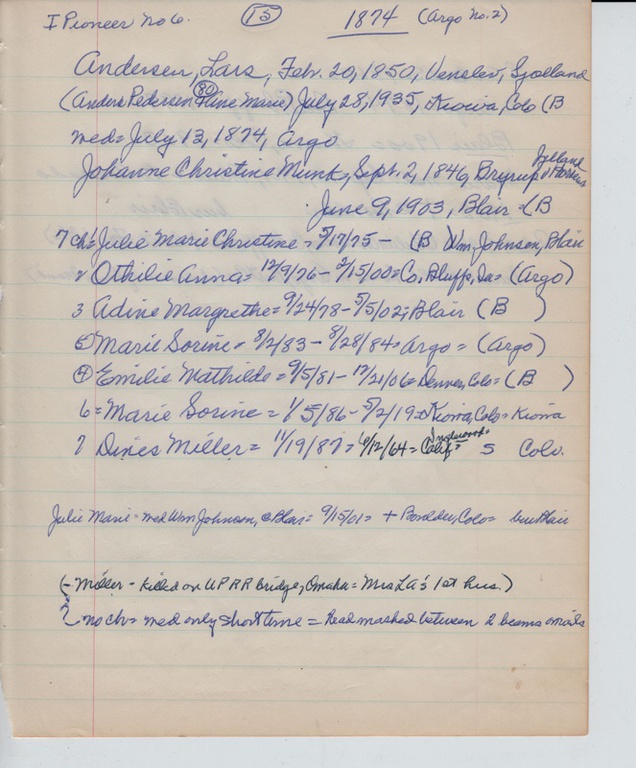 I Pioneer No 6. (15) 1874 (Argo No. 2)
Andersen, Lars, Feb. 20, 1850, Venslev, Sjoelland
(Anders Pedersen & Line Marie) July 28, 1935, Kiowa, Colo (B
(80)
med = July 13, 1874, Argo
Johanne Christine Munk, Sept. 2, 1846, Bryrup, Jylland
June 9, 1903, Blair = (B
7 ch = Julie Marie Christine = 5/17/75 - (B ) Wm. Johnsen, Blair
2 Othilie Anna = 12/9/76 - 2/15/00 = Co. Bluffs, Ia = (Argo)
3 Adine Margrethe = 9/24/78 - 5/5/02 = Blair (B )
(5) Marie Sorine = 8/2/83 - 8/28/84 = Argo = (Argo)
(4) Emilie Mathilde = 9/5/81 - 12/21/06 = Denver, Colo = (B )
6 = Marie Sorine = 1/5/86 - 5/2/19 = Kiowa, Colo = Kiowa
7 Dines Miller = 11/19/87 = 6/12/64 = Inglewood, Calif = S Colo.
Julie Marie = med Wm Johnson, @ Blair = 9/15/01 = + Boulder, Colo = bur Blair
(- Miller - killed on UPRR bridge, Omaha = Mrs LA's 1st hus.)
no ch = med only short time = Head mashed between 2 beams on rails